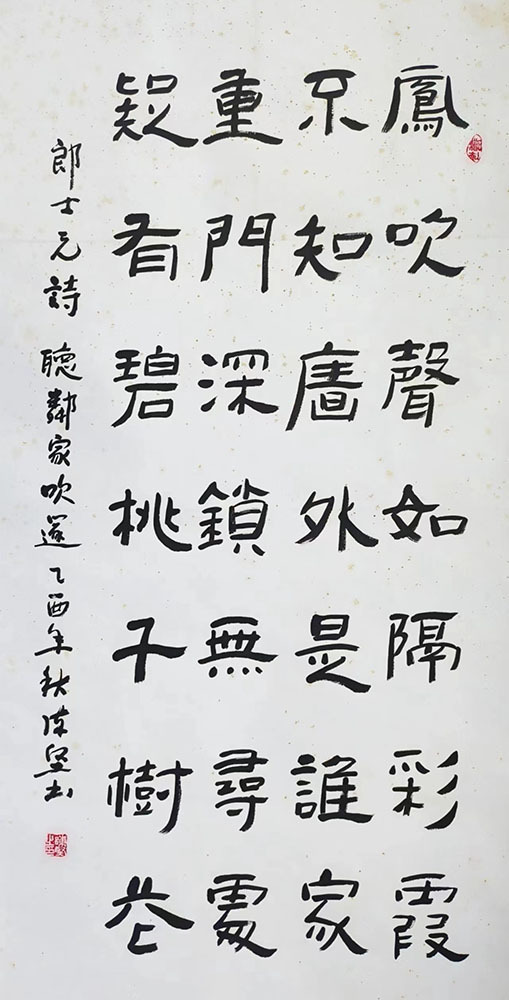 鳳吹聲如隔彩霞
不知廧外是誰家
重門深鎖無尋處
疑有碧桃千樹花
郎士元詩 聽鄰家吹篴 乙酉年秋 堅书